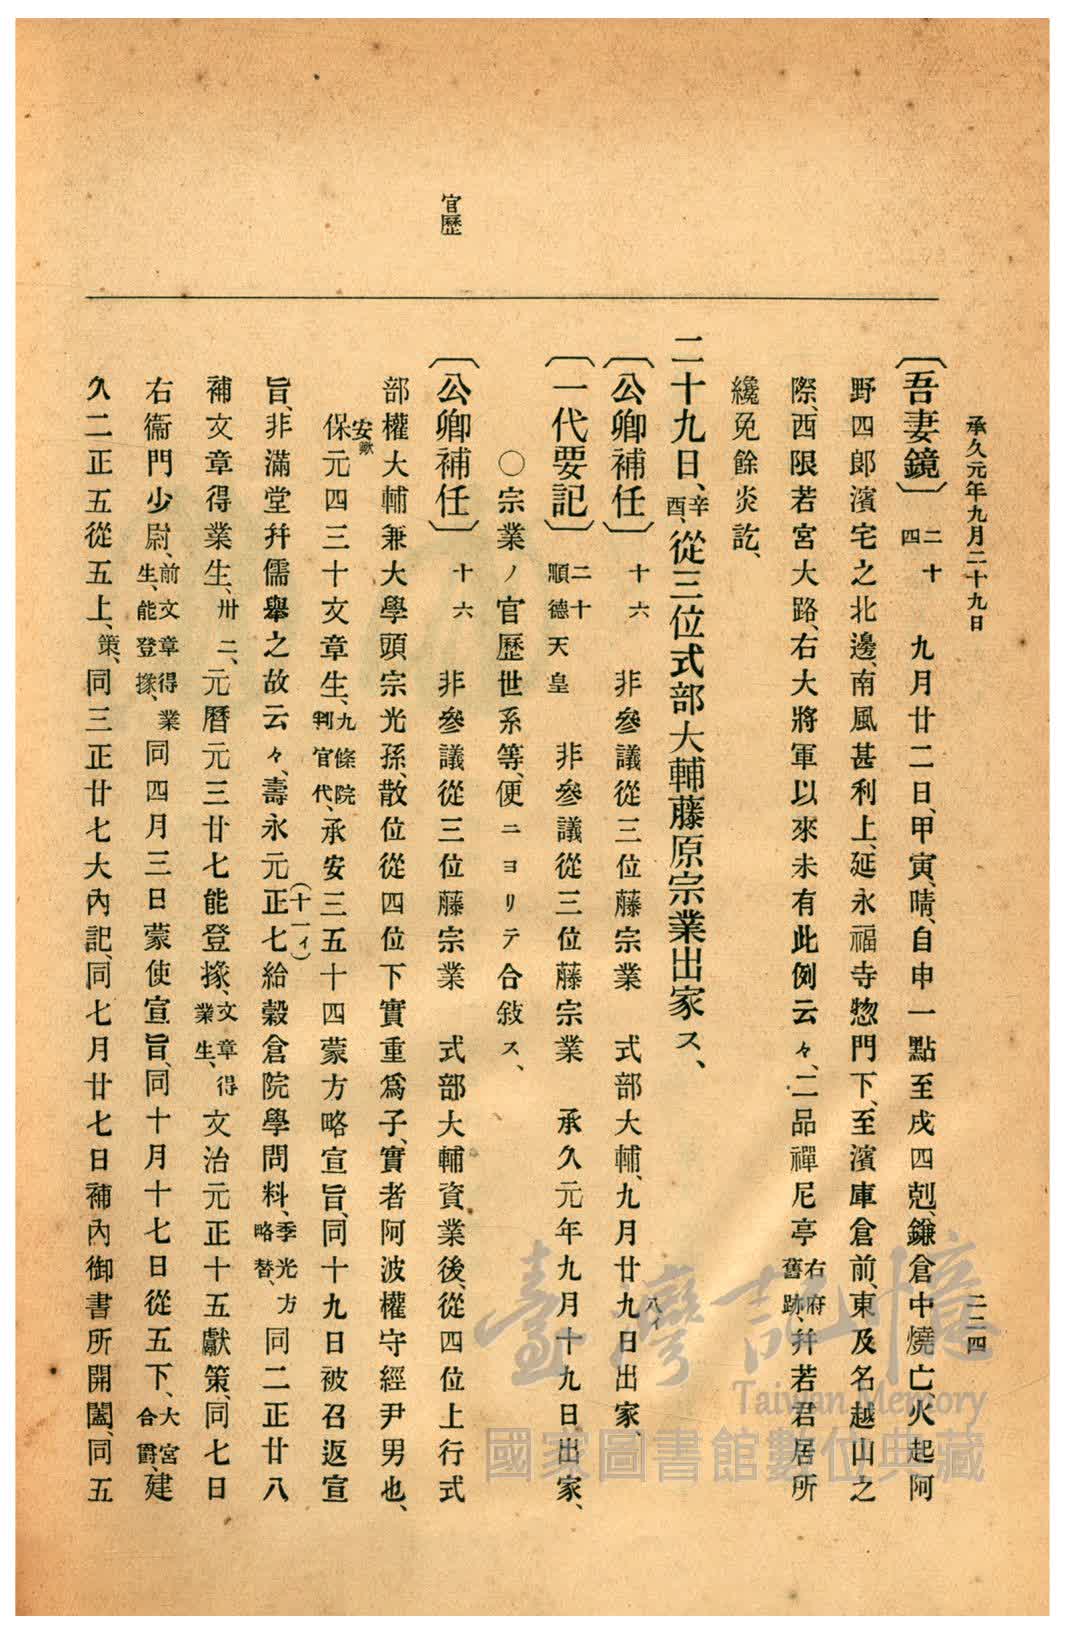 承久元年九月二十九日
二二四
官歷
〔吾妻鏡〕二十四 九月廿二日、甲寅、晴、自申一點至戌四剋、鎌倉中燒亡、火起阿
野四郞濱宅之北邊、南風甚利上、延永福寺惣門下、至濱庫倉前、東及名越山之
際、西限若宮大路、右大將軍以來未有此例云々、二品禪尼亭右府舊跡、幷若君居所
纔免餘炎訖、
二十九日、辛酉、從三位式部大輔藤原宗業出家ス、
〔公卿補任〕十六 非參議從三位藤宗業 式部大輔、九月廿九日出家、八イ
〔一代要記〕二十順德天皇 非參議從三位藤宗業 承久元年九月十九日出家、
○宗業ノ官歷世系等、便ニヨリテ合敍ス、
〔公卿補任〕十六 非參議從三位藤宗業 式部大輔、資業後、從四位上行式
部權大輔兼大學頭宗光孫、散位從四位下實重爲子、實者阿波權守經尹男也、
保安歟元四三十文章生、九條院判官代、承安三五十四蒙方略宣旨、同十九日被召返宣
旨、非滿堂幷儒擧之故云々、壽永元正(十一イ)七給穀倉院學問料、季光方略替、同二正廿八
補文章得業生、卅二、元曆元三廿七能登掾、文章得業生、文治元正十五獻策、同七日
右衞門少尉、前文章得業生、能登掾、同四月三日蒙使宣旨、同十月十七日從五下、大宮合爵、建
久二正五從五上、策、同三正廿七大內記、同七月廿七日補內御書所開闔、同五
臺灣記憶
Taiwan Memory
國家圖書館數位典藏